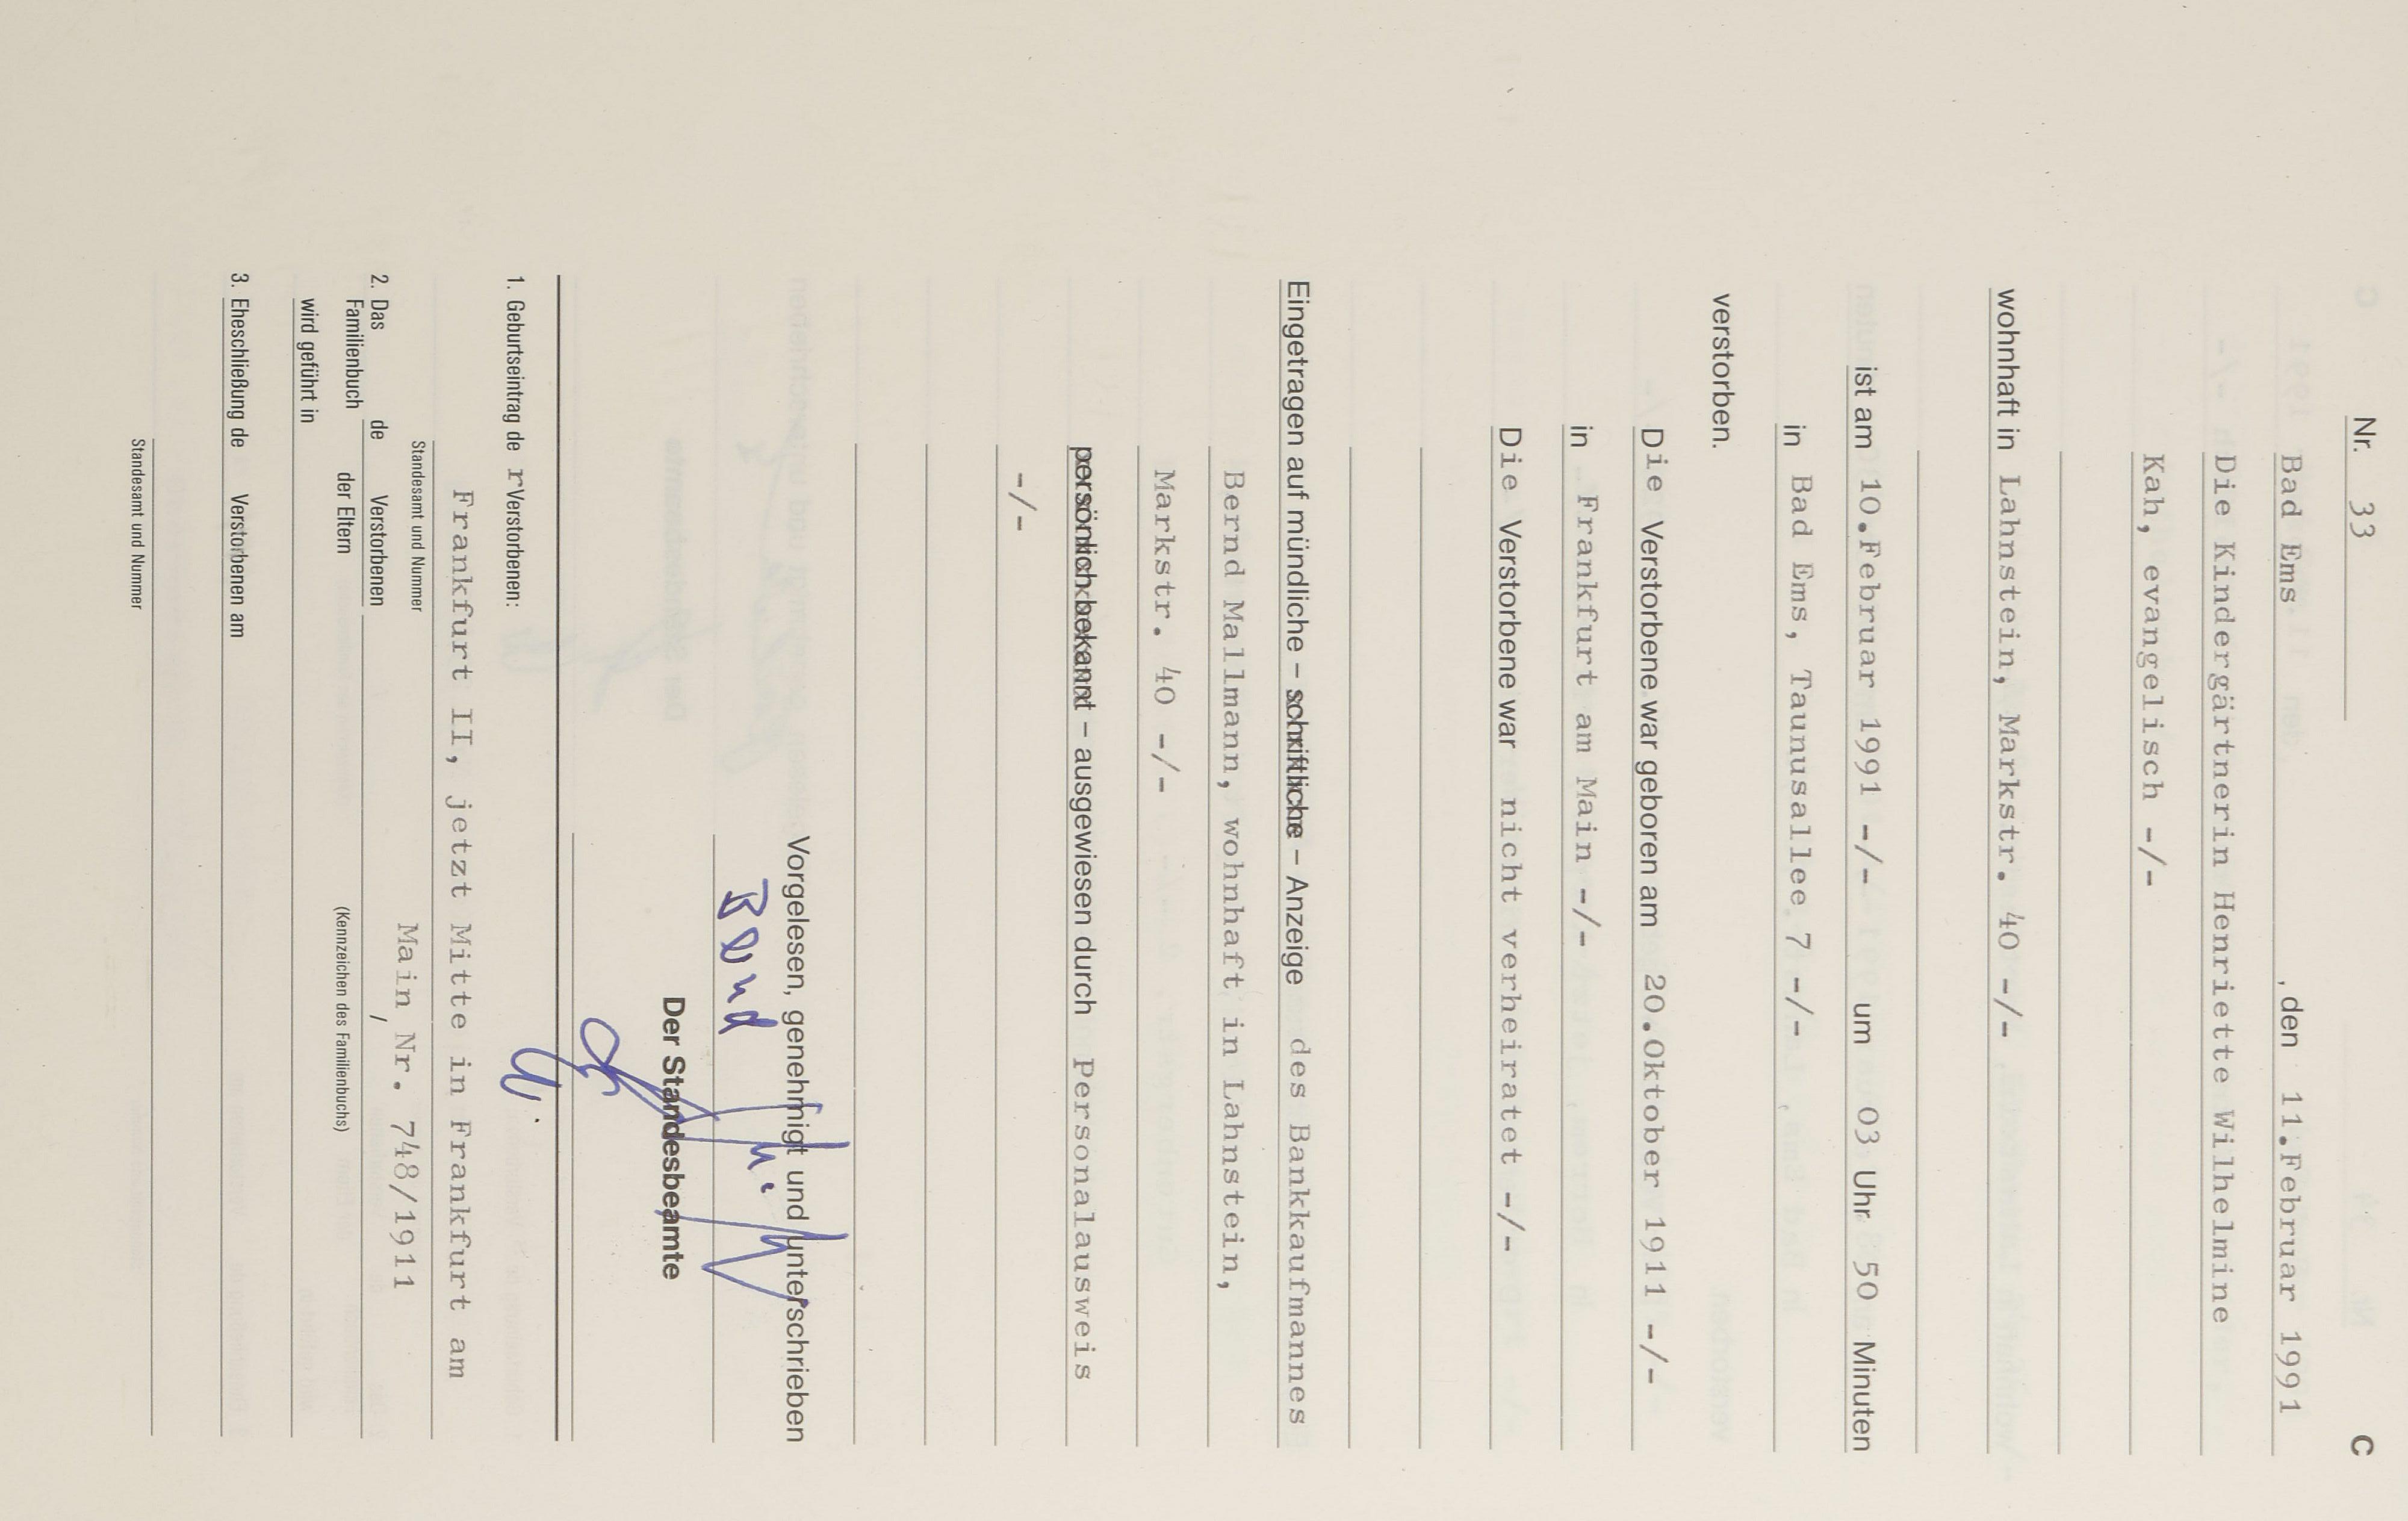 Nr. 33 C
Bad Ems , den 11.Februar 1991
Die Kindergärtnerin Henriette Wilhelmine
Kah, evangelisch -/-
wohnhaft in Lahnstein, Markstr. 40 -/-
ist am 10.Februar 1991 -/- um 03 Uhr 50 Minuten
in Bad Ems, Taunusallee 7 -/-
verstorben.
Die Verstorbene war geboren am 20.Oktober 1911 -/-
in Frankfurt am Main -/-
Die Verstorbene war nicht verheiratet -/-
Eingetragen auf mündliche – schriftliche – Anzeige des Bankkaufmannes
Bernd Mallmann, wohnhaft in Lahnstein,
Markstr. 40 -/-
persönlich bekannt – ausgewiesen durch Personalausweis
-/-
Vorgelesen, genehmigt und unterschrieben
Bernd
Der Standesbeamte
1. Geburtseintrag de r Verstorbenen:
Frankfurt II, jetzt Mitte in Frankfurt am
Standesamt und Nummer Main Nr. 748/1911
2. Das Familienbuch de Verstorbenen /
der Eltern (Kennzeichen des Familienbuchs)
wird geführt in
3. Eheschließung de Verstorbenen am
Standesamt und Nummer